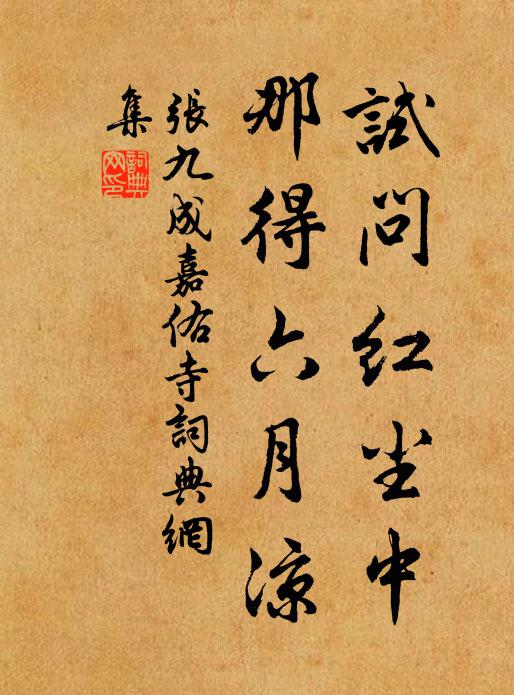 試問紅尘中
那得六月涼
張九成嘉佑寺詞典網
集
詞典網印